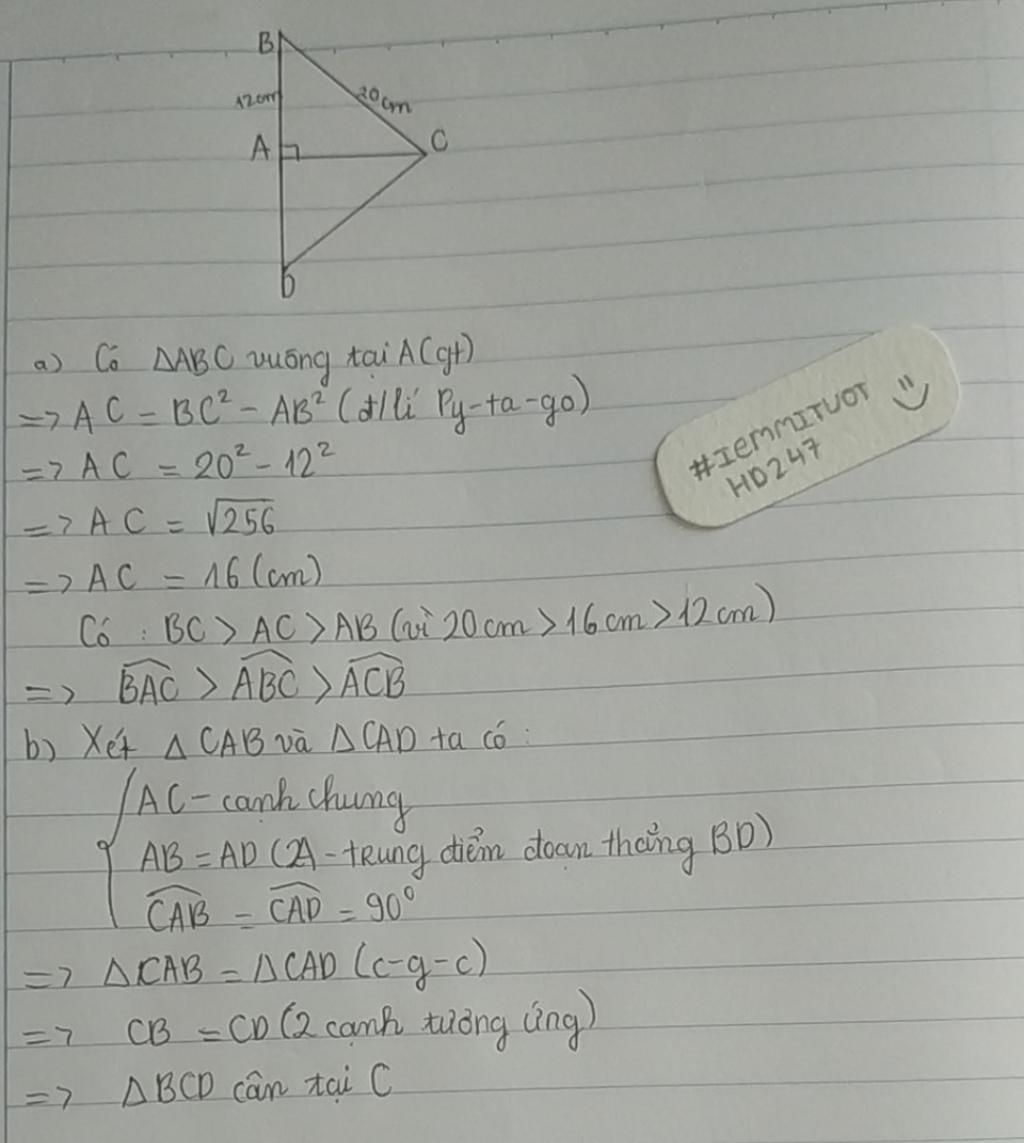 B
12cm
20cm
A
C
D
a) Có ΔABC vuông tại A(gt)
=> AC = BC² - AB² (đ/lí Py-ta-go)
=> AC = 20² - 12²
=> AC = √256
=> AC = 16 (cm)
Có : BC > AC > AB (vì 20cm > 16cm > 12cm)
=> \widehat{BAC} > \widehat{ABC} > \widehat{ACB}
b) Xét Δ CAB và Δ CAD ta có :
AC - cạnh chung
AB = AD (A - trung điểm đoạn thẳng BD)
\widehat{CAB} = \widehat{CAD} = 90°
=> ΔCAB = ΔCAD (c-g-c)
=> CB = CD (2 cạnh tương ứng)
=> ΔBCD cân tại C
#IEMMITUOT
HD247